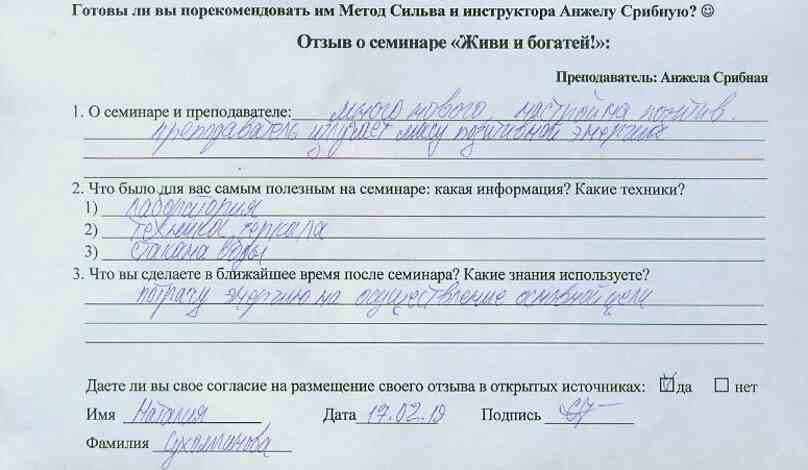 Готовы ли вы порекомендовать им Метод Сильва и инструктора Анжелу Срибную? ☺
Отзыв о семинаре «Живи и богатей!»:
Преподаватель: Анжела Срибная
1. О семинаре и преподавателе: много нового, настрой на позитив.
преподаватель излучает массу позитивной энергии
2. Что было для вас самым полезным на семинаре: какая информация? Какие техники?
1) лаборатория
2) техника зеркала
3) стакана воды
3. Что вы сделаете в ближайшее время после семинара? Какие знания используете?
потрачу энергию на осуществление основной цели
Даете ли вы свое согласие на размещение своего отзыва в открытых источниках: ☑ да ☐ нет
Имя Наталия Дата 17.02.19 Подпись
Фамилия